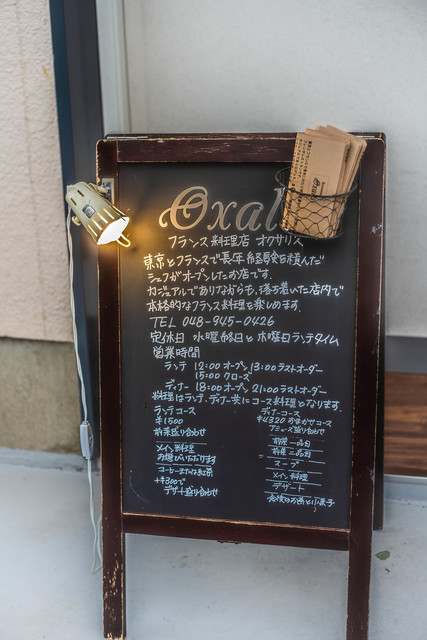 Oxal
フランス料理店 オクサリス
東京とフランスで長年経験を積んだ
シェフがオープンしたお店です。
カジュアルでありながらも、落ち着いた店内で
本格的なフランス料理を楽しめます。
TEL 048-945-0426
定休日 水曜終日と木曜日ランチタイム
営業時間
ランチ 12:00 オープン 13:00 ラストオーダー
15:00 クローズ
ディナー 18:00 オープン 21:00 ラストオーダー
料理はランチ、ディナー共にコース料理となります。
ランチコース
¥1500
前菜盛り合わせ
メイン料理
お選びいただけます
コーヒー又は紅茶
+¥300で
デザート盛り合わせ
ディナーコース
¥4320 おまかせコース
アミューズ盛り合わせ
前菜一品目
前菜二品目
スープ
メイン料理
デザート
食後のお茶と小菓子